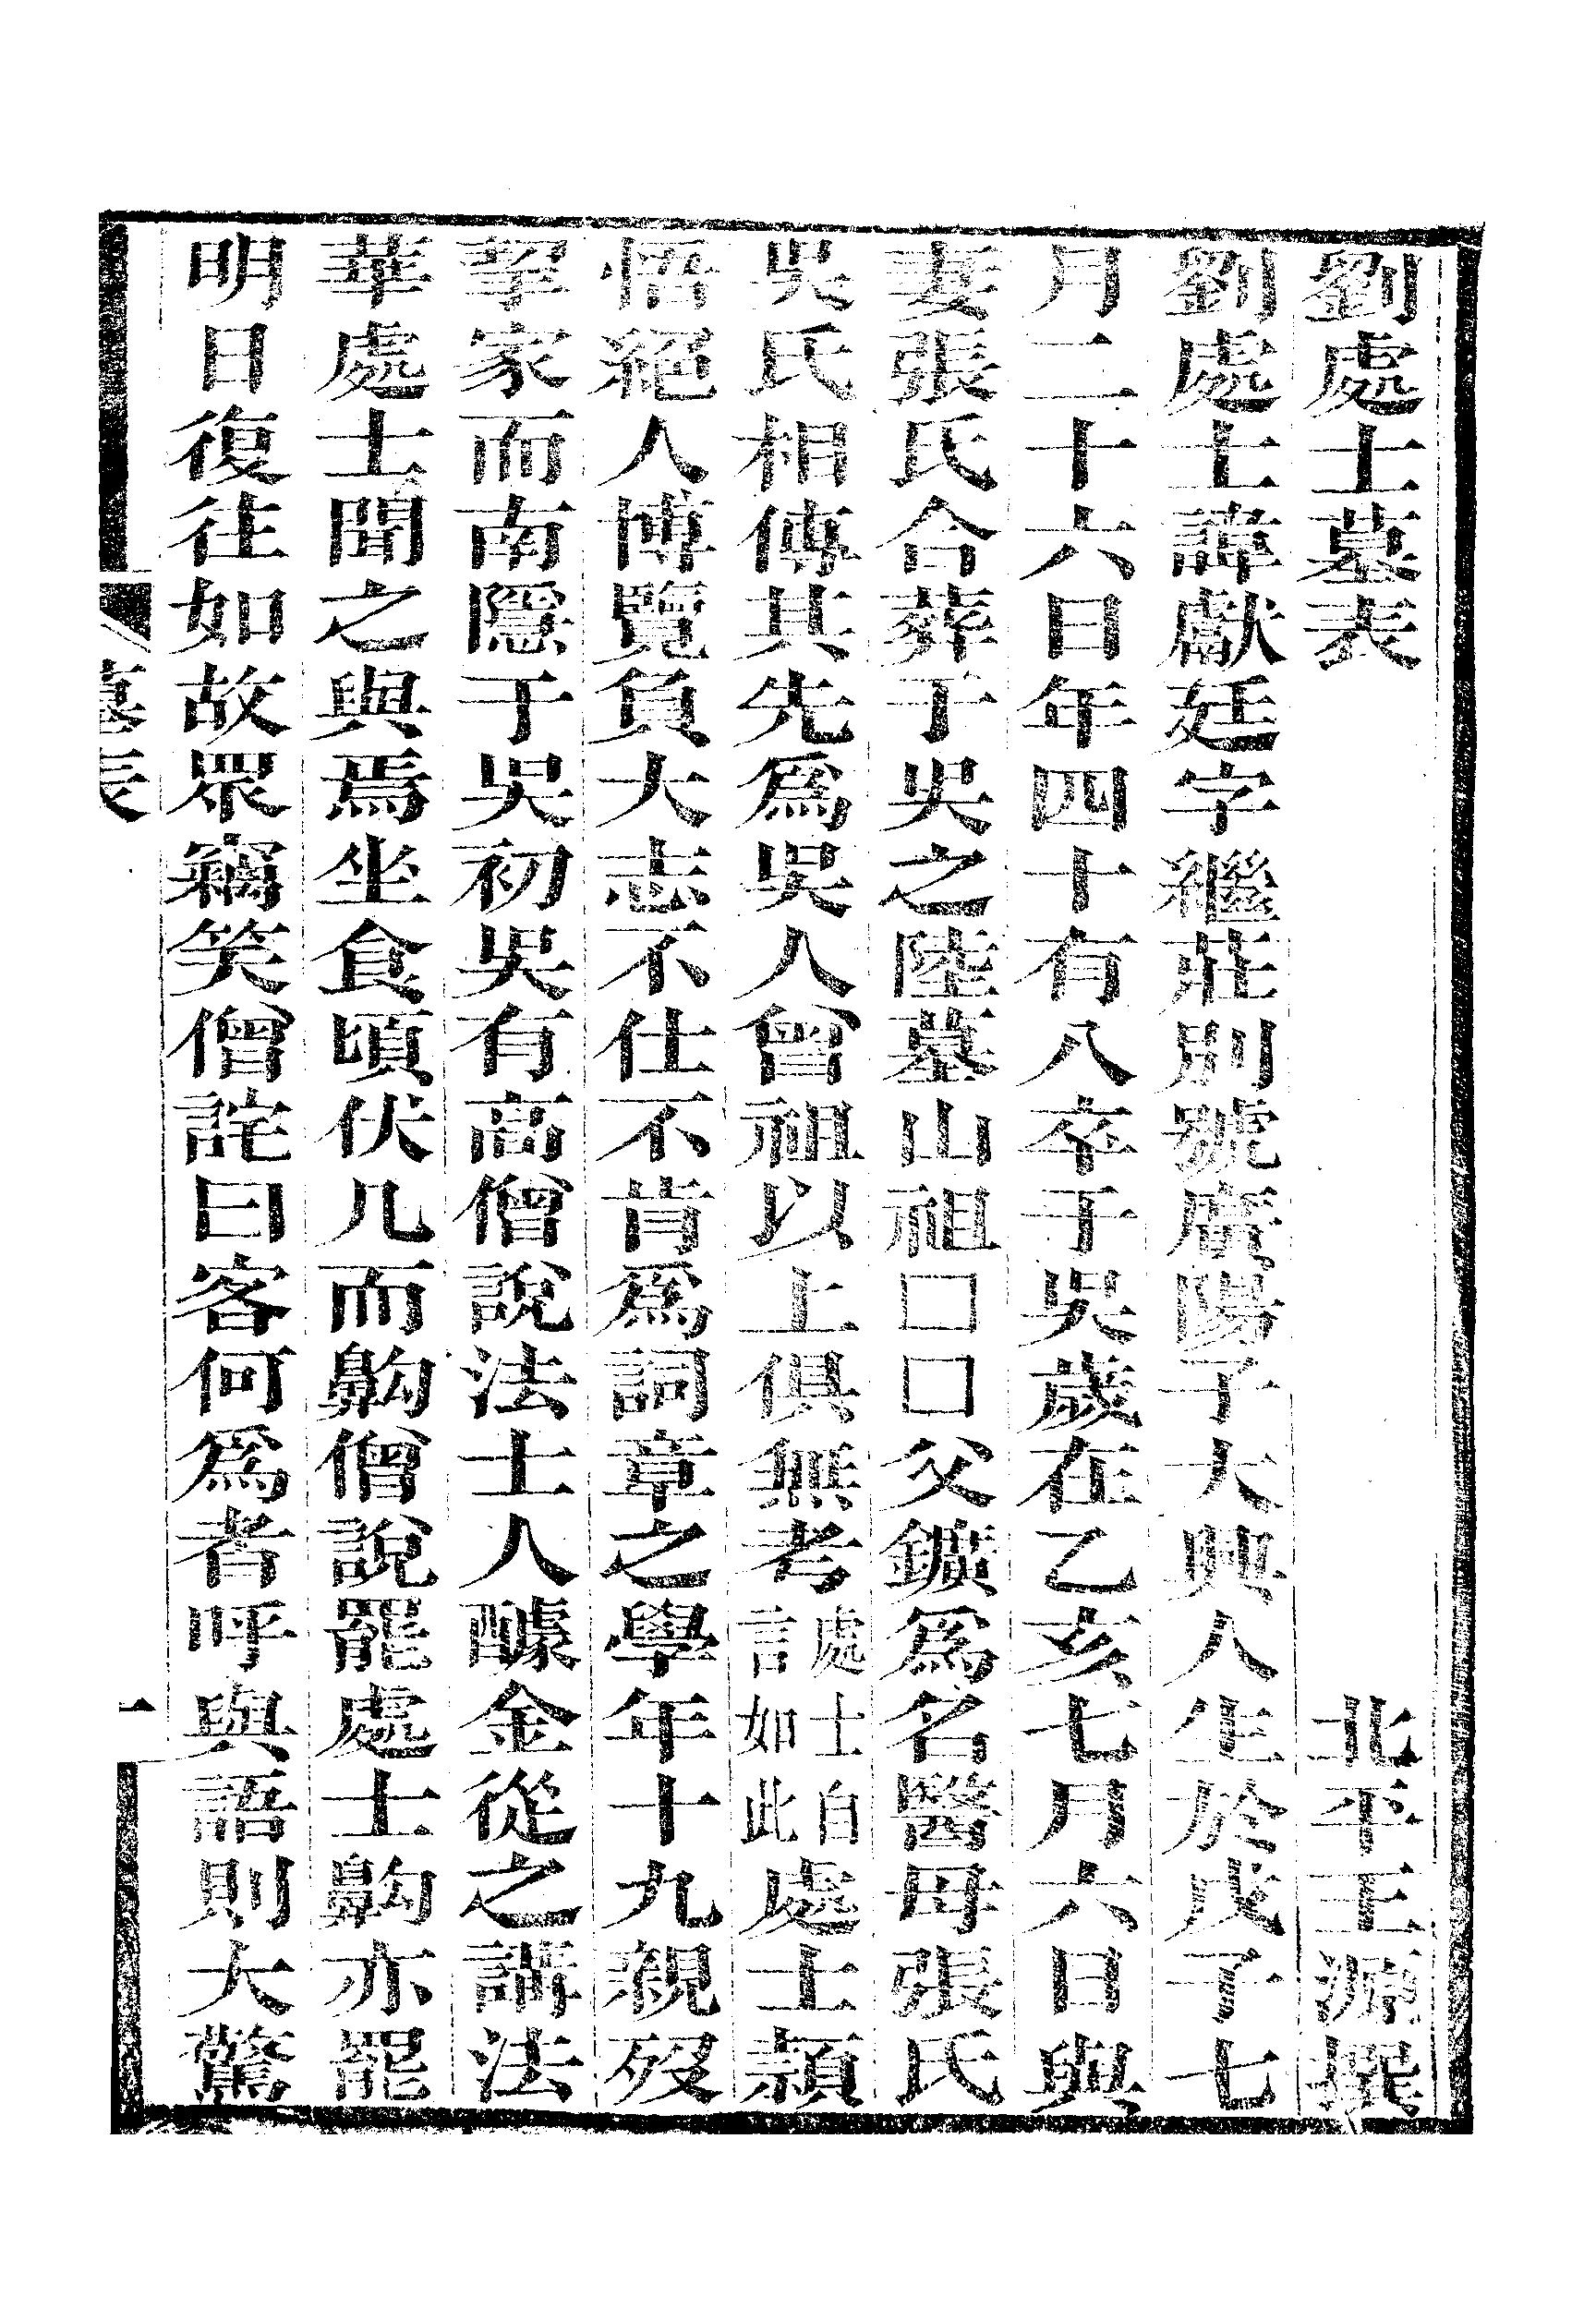 劉處士墓表　北平王源撰
劉處士諱獻廷字繼莊別號廣陽子大興人生於戊子七
月二十六日年四十有八卒于吳歲在乙亥七月六日與
妻張氏合葬于吳之陸墓山祖□□父鑛爲名醫母張氏
吳氏相傳其先爲吳人曾祖以上俱無考處士自言如此處士頴
悟絕人博覽負大志不仕不肯爲詞章之學年十九親歿
挈家而南隱于吳初吳有高僧說法士人醵金從之講法
華處士聞之與焉坐食頃伏几而齁僧說罷處士齁亦罷
明日復往如故眾竊笑僧詫曰客何爲者呼與語則大驚
墓表
一